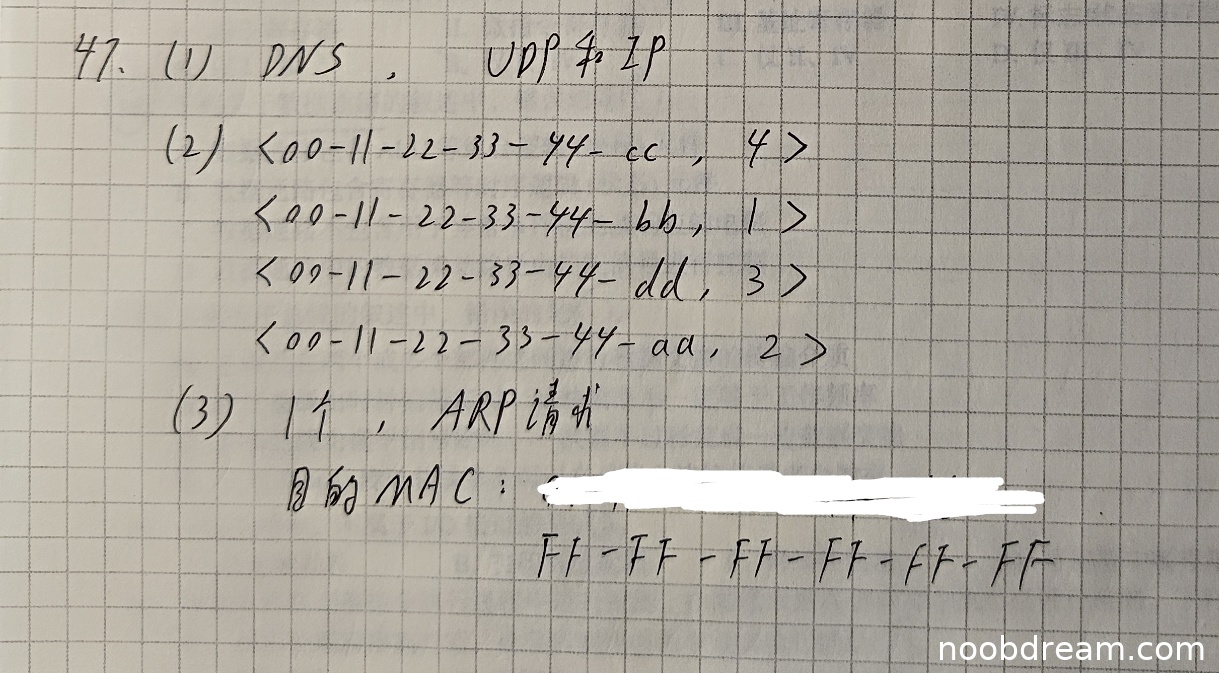 47. (1) DNS , UDP和IP
(2) <00-11-22-33-44-cc , 4>
<00-11-22-33-44-bb, 1>
<00-11-22-33-44-dd, 3>
<00-11-22-33-44-aa, 2>
(3) 1个 , ARP请求
目的MAC:
FF-FF-FF-FF-FF-FF
noobdream.com